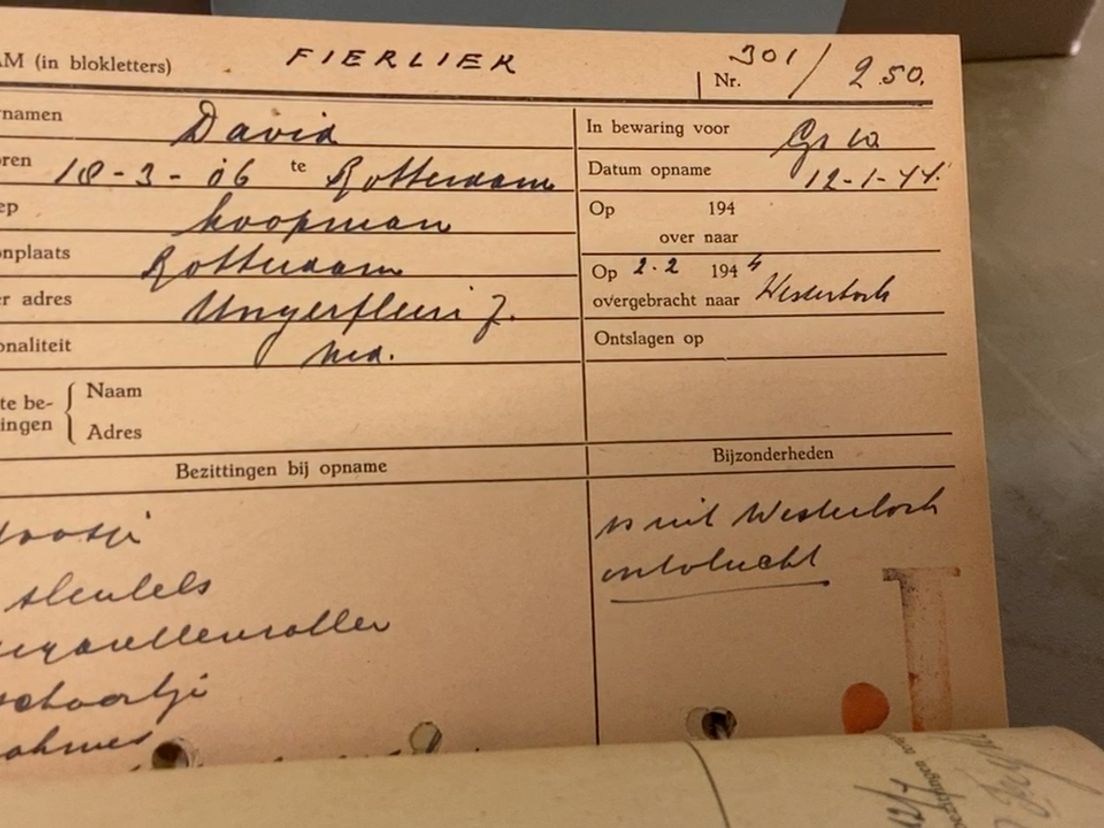 AM (in blokletters) FIERLIER Nr. 301/250.
rnamen David
oren 18-3-06 te Rotterdam
ep koopman
onplaats Rotterdam
er adres Ungerplein 7.
onaliteit Ned.
te be-
ingen
Naam
Adres
In bewaring voor
Datum opname 12-1-44.
Op 194
over naar
Op 2.2 1944
overgebracht naar Westerbork
Ontslagen op
Bezittingen bij opname
sleutels
Bijzonderheden
is uit Westerbork
ontvlucht
J